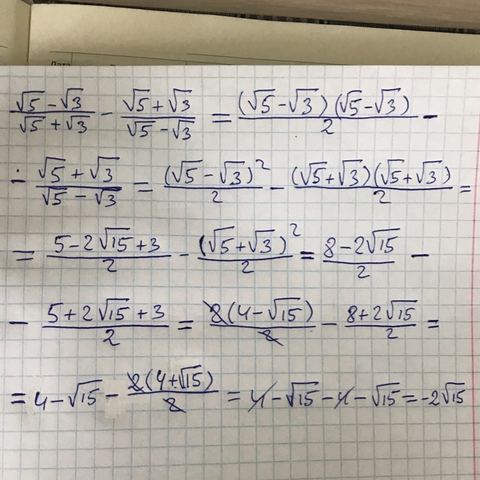 (√5 - √3)/(√5 + √3) - (√5 + √3)/(√5 - √3) = (√5 - √3)(√5 - √3)/2 -
- (√5 + √3)/(√5 - √3) = (√5 - √3)²/2 - (√5 + √3)(√5 + √3)/2 =
= (5 - 2√15 + 3)/2 - (√5 + √3)²/2 = (8 - 2√15)/2 -
- (5 + 2√15 + 3)/2 = 2(4 - √15)/2 - (8 + 2√15)/2 =
= 4 - √15 - 2(4 + √15)/2 = 4 - √15 - 4 - √15 = -2√15